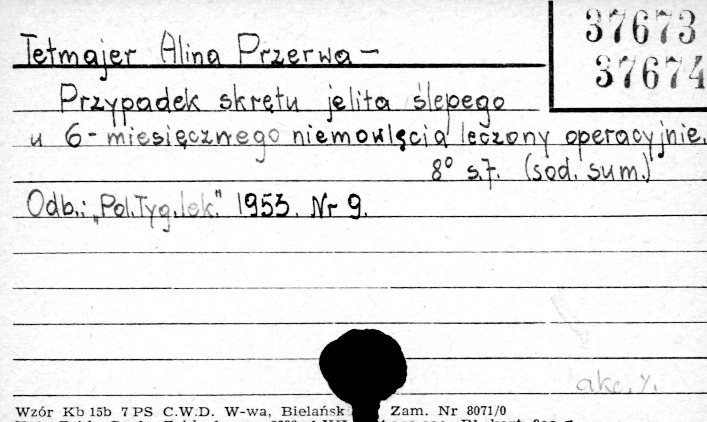 37673
37674
Tetmajer Alina Przerwa-
Przypadek skrętu jelita ślepego
u 6-miesięcznego niemowlęcia leczony operacyjnie.
8° s.7. (sod. sum.)
Odb.: "Pol.Tyg.lek." 1953. Nr 9.
akc. y.
Wzór Kb 15b 7 PS C.W.D. W-wa, Bielańsk Zam. Nr 8071/0